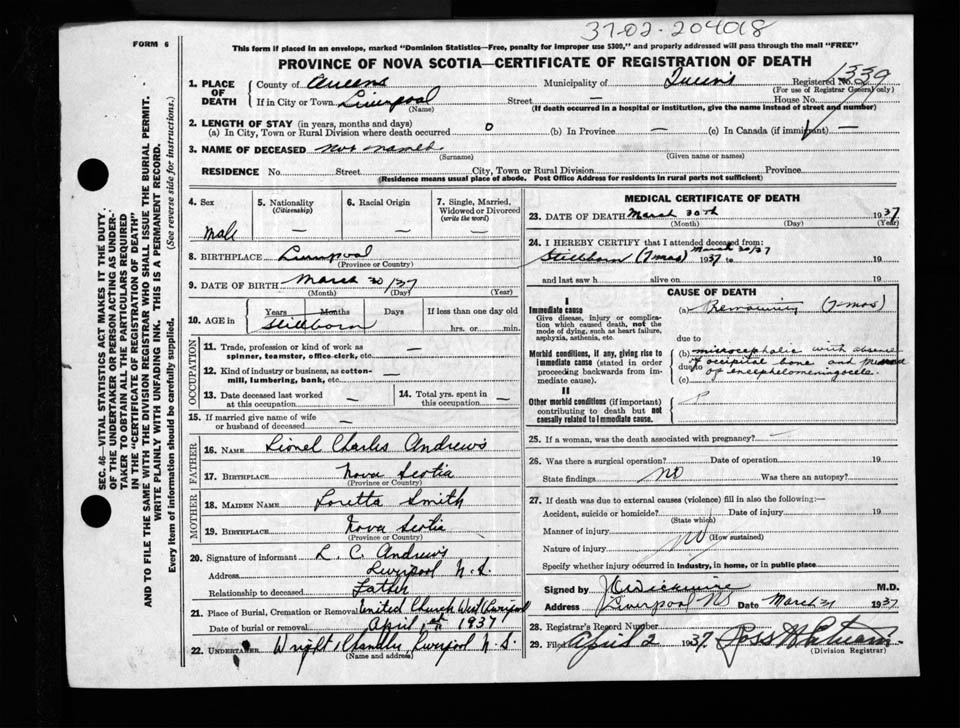 37-02-204018
FORM 6
This form if placed in an envelope, marked "Dominion Statistics—Free, penalty for improper use $300," and properly addressed will pass through the mail "FREE"
PROVINCE OF NOVA SCOTIA—CERTIFICATE OF REGISTRATION OF DEATH
1. PLACE OF DEATH
County of Queens Municipality of Queens Registered No. 1339
(For use of Registrar General only)
If in City or Town Liverpool Street — House No.
(Name) (If death occurred in a hospital or institution, give the name instead of street and number)
2. LENGTH OF STAY (in years, months and days)
(a) In City, Town or Rural Division where death occurred 0 (b) In Province — (c) In Canada (if immigrant) —
3. NAME OF DECEASED not named
(Surname) (Given name or names)
RESIDENCE No. Street City, Town or Rural Division Province
(Residence means usual place of abode. Post Office Address for residents in rural parts not sufficient)
4. Sex 5. Nationality (Citizenship) 6. Racial Origin 7. Single, Married, Widowed or Divorced (write the word)
Male — — —
8. BIRTHPLACE Liverpool
(Province or Country)
9. DATE OF BIRTH March 30/37
(Month) (Day) (Year)
10. AGE in Years Months Days If less than one day old
Stillborn hrs. or min.
OCCUPATION
11. Trade, profession or kind of work as spinner, teamster, office clerk, etc. —
12. Kind of industry or business, as cotton-mill, lumbering, bank, etc. —
13. Date deceased last worked at this occupation — 14. Total yrs. spent in this occupation —
15. If married give name of wife or husband of deceased —
FATHER
16. NAME Lionel Charles Andrews
17. BIRTHPLACE Nova Scotia
(Province or Country)
MOTHER
18. MAIDEN NAME Loretta Smith
19. BIRTHPLACE Nova Scotia
(Province or Country)
20. Signature of informant L. C. Andrews
Address Liverpool N.S.
Relationship to deceased Father
21. Place of Burial, Cremation or Removal United Church West Liverpool
Date of burial or removal April 1st 1937
22. UNDERTAKER Wright & Chandler Liverpool N.S
(Name and address)
MEDICAL CERTIFICATE OF DEATH
23. DATE OF DEATH March 30th 1937
(Month) (Day) (Year)
24. I HEREBY CERTIFY that I attended deceased from:
Stillborn (7 mos) 1937 to March 30/37 19
and last saw h alive on 19
CAUSE OF DEATH
I
Immediate cause
Give disease, injury or complication which caused death, not the mode of dying, such as heart failure, asphyxia, asthenia, etc.
(a) Prematurity (7 mos)
due to
Morbid conditions, if any, giving rise to immediate cause (stated in order proceeding backwards from immediate cause).
(b) microcephalic with absence
due to of occipital bone and
(c) of encephalomeningocele.
II
Other morbid conditions (if important) contributing to death but not causally related to immediate cause.
25. If a woman, was the death associated with pregnancy? —
26. Was there a surgical operation? Date of operation 19
State findings NO Was there an autopsy?
27. If death was due to external causes (violence) fill in also the following:—
Accident, suicide or homicide? Date of injury 19
(State which)
Manner of injury no
(How sustained)
Nature of injury
Specify whether injury occurred in industry, in home, or in public place
Signed by J C Wickwire M.D.
Address Liverpool NS Date March 31 1937
28. Registrar's Record Number
29. Filed April 2 1937. Ross
(Division Registrar)
SEC. 46—VITAL STATISTICS ACT MAKES IT THE DUTY
OF THE UNDERTAKER OR PERSON ACTING AS UNDER-
TAKER TO OBTAIN ALL THE PARTICULARS REQUIRED
IN THE "CERTIFICATE OF REGISTRATION OF DEATH"
AND TO FILE THE SAME WITH THE DIVISION REGISTRAR WHO SHALL ISSUE THE BURIAL PERMIT.
WRITE PLAINLY WITH UNFADING INK. THIS IS A PERMANENT RECORD.
Every item of information should be carefully supplied. (See reverse side for instructions.)